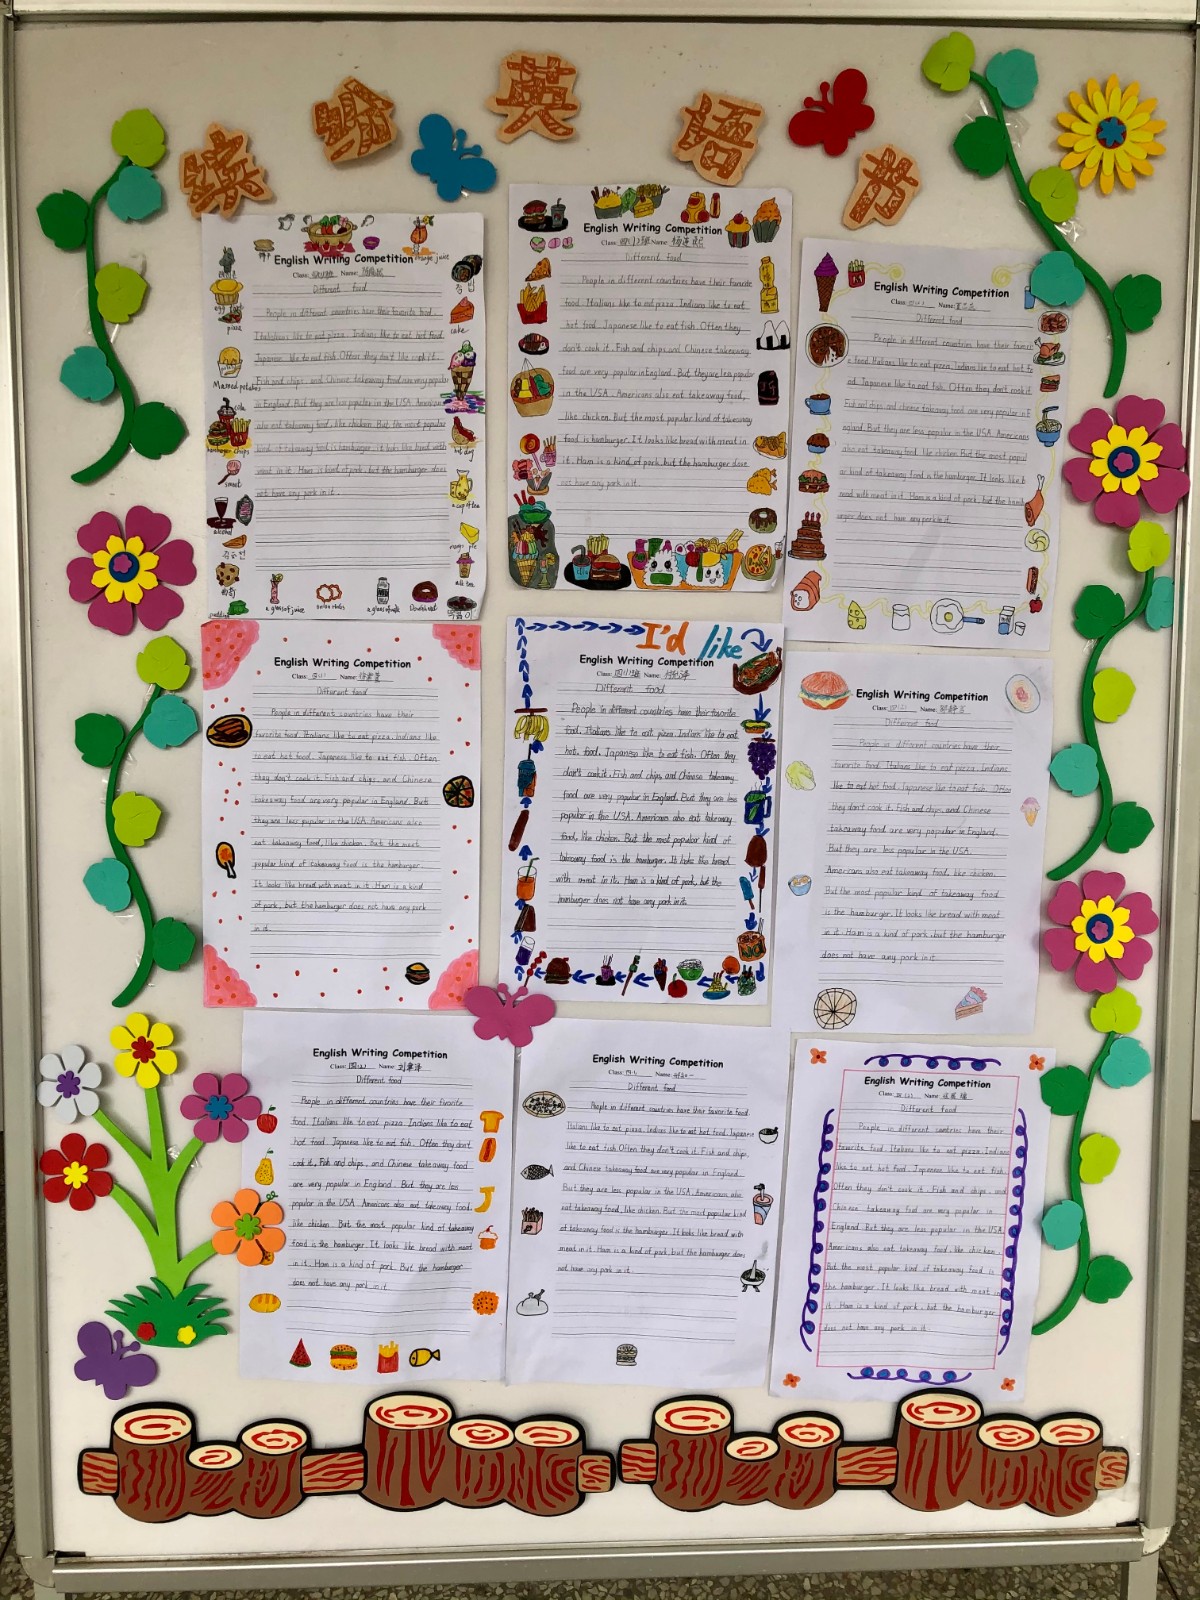 缤纷英语节
English Writing Competition
Class: Name:
Different food
People in different countries have their favorite food.
Italians like to eat pizza. Indians like to eat hot food.
Japanese like to eat fish. Often they don't like cook it.
Fish and chips, and Chinese takeaway food are very popular
in England. But they are less popular in the USA. Americans
also eat takeaway food, like chicken. But the most popular
kind of takeaway food is hamburger. It looks like bread with
meat in it. Ham is kind of pork, but the hamburger does
not have any pork in it.
orange juice
egg tart
pizza
cake
Mashed potatoes
cola
hamburger chips
hot dog
sweet
a cup of tea
alcohol
mango pie
milk tea
pudding
a glass of juice
onion rings
a glass of milk
Doughnut
English Writing Competition
Class: Name:
Different food
People in different countries have their favorite
food. Italians like to eat pizza. Indians like to eat
hot food. Japanese like to eat fish. Often they
don't cook it. Fish and chips and Chinese takeaway
food are very popular in England. But they are less popular
in the USA. Americans also eat takeaway food,
like chicken. But the most popular kind of takeaway
food is hamburger. It looks like bread with meat in
it. Ham is a kind of pork, but the hamburger dose
not have any pork in it.
English Writing Competition
Class: 四(1) Name:
Different food
People in different countries have their favorit
e food. Italians like to eat pizza. Indians like to eat hot fo
od. Japanese like to eat fish. Often they don't cook it.
Fish and chips and chinese takeaway food are very popular in E
ngland. But they are less popular in the USA. Americans
also eat takeaway food, like chicken. But the most popul
ar kind of takeaway food is the hamburger. It looks like b
read with meat in it. Ham is a kind of pork, but the hamb
urger does not have any pork in it.
English Writing Competition
Class: 四(1) Name:
Different food
People in different countries have their
favorite food. Italians like to eat pizza. Indians like
to eat hot food. Japanese like to eat fish. Often
they don't cook it. Fish and chips, and Chinese
takeaway food are very popular in England. But
they are less popular in the USA. Americans also
eat takeaway food, like chicken. But the most
popular kind of takeaway food is the hamburger.
It looks like bread with meat in it. Ham is a kind
of pork, but the hamburger does not have any pork
in it.
I'd like
English Writing Competition
Class: Name:
Different food
People in different countries have their favorite
food. Italians like to eat pizza. Indians like to eat
hot food. Japanese like to eat fish. Often they
don't cook it. Fish and chips and Chinese takeaway
food are very popular in England. But they are less
popular in the USA. Americans also eat takeaway
food, like chicken. But the most popular kind of
takeaway food is the hamburger. It looks like bread
with meat in it. Ham is a kind of pork, but the
hamburger does not have any pork in it.
English Writing Competition
Class: Name:
Different food
People in different countries have their
favorite food. Italians like to eat pizza. Indians
like to eat hot food. Japanese like to eat fish. Often
they don't cook it. Fish and chips, and Chinese
takeaway food are very popular in England.
But they are less popular in the USA.
Americans also eat takeaway food, like chicken.
But the most popular kind of takeaway food
is the hamburger. It looks like bread with meat
in it. Ham is a kind of pork, but the hamburger
does not have any pork in it.
English Writing Competition
Class: Name:
Different food
People in different countries have their favorite
food. Italians like to eat pizza. Indians like to eat
hot food. Japanese like to eat fish. Often they don't
cook it. Fish and chips, and Chinese takeaway food
are very popular in England. But they are less
popular in the USA. Americans also eat takeaway food,
like chicken. But the most popular kind of takeaway
food is the hamburger. It looks like bread with meat
in it. Ham is a kind of pork. But the hamburger
does not have any pork in it.
English Writing Competition
Class: Name:
Different food
People in different countries have their favorite food.
Italians like to eat pizza. Indians like to eat hot food. Japanese
like to eat fish. Often they don't cook it. Fish and chips,
and Chinese takeaway food are very popular in England.
But they are less popular in the USA. Americans also
eat takeaway food, like chicken. But the most popular kind
of takeaway food is the hamburger. It looks like bread with
meat in it. Ham is a kind of pork, but the hamburger does
not have any pork in it.
English Writing Competition
Class: Name:
Different food
People in different countries have their
favorite food. Italians like to eat pizza. Indians
like to eat hot food. Japanese like to eat fish.
Often they don't cook it. Fish and chips, and
Chinese takeaway food are very popular in
England. But they are less popular in the USA.
Americans also eat takeaway food, like chicken.
But the most popular kind of takeaway food is
the hamburger. It looks like bread with meat in
it. Ham is a kind of pork, but the hamburger
does not have any pork in it.